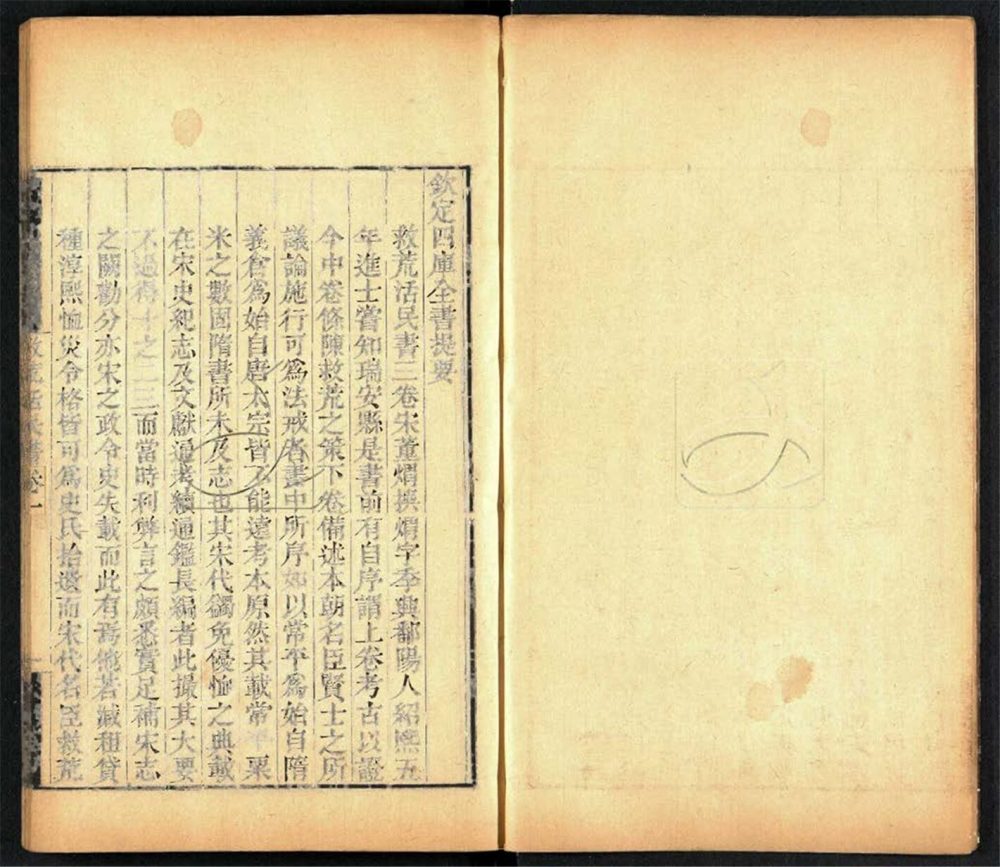 欽定四庫全書提要
救荒活民書三卷宋董煟撰煟字季興鄱陽人紹熙五
年進士嘗知瑞安縣是書前有自序謂上卷考古以證
今中卷條陳救荒之策下卷備述本朝名臣賢士之所
議論施行可為法戒者書中所序如以常平為始自隋
義倉為始自唐太宗皆不能遠考本原然其載常平粟
米之數固隋書所未及志也其宋代蠲免優恤之典載
在宋史紀志及文獻通考續通鑑長編者此撮其大要
不過得十之二三而當時利弊言之頗悉實足補宋志
之闕勸分亦宋之政令史失載而此有焉他若減租貸
種淳熙恤災令格皆可為史氏拾遺而宋代名臣救荒
救荒活民書 卷一